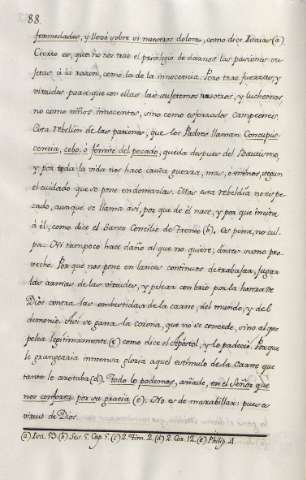 88.
fermedades, y llevó sobre si nuestros dolores, como dice Isaias (a)
Cierto es, que no nos trae el privilegio de darnos las pasiones su-
jetas à la razon, como la de la inocencia. Pero trae fuerzas, y
virtudes para que con ellas las sujetemos nosotros, y luchemos
no como niños inocentes, sino como esforzados campeones.
Esta rebelion de las pasiones, que los Padres llaman Concupis-
cencia, cebo, ò fomite del pecado, queda despues del Bautismo,
y por toda la vida nos hace cruda guerra, mas, o menos, segun
el cuidado que se pone en domarlas. Mas esta rebeldia no es pe-
cado, aunque se llama asi, por que de él nace, y por que incita
à él, como dice el Santo Concilio de Trento (b). Es pena, no cul-
pa. Ni tampoco hace daño al que no quiere, antes sumo pro-
vecho. Porque nos pone en lances continuos de trabajar, jugar
las armas de las virtudes, y pelear con brio por la honra de
Dios contra las embestidas de la carne, del mundo, y del
demonio. Asi se gana la corona, que no se concede, sino al que
pelea legitimamente (c) como dice el Apostol, y lo padeciò. Porque
le grangearia inmensa gloria aquel estimulo de la Carne que
tanto le azotaba (d). Todo lo podemos, añade, en el Señor que
nos conforta por su gracia (e). No es de maravillar: pues es
virtud de Dios.
(a) Isa. 53. (b) Ses. 5. Cap. 5. (c) 2. Tim. 2. (d) 2. Cor. 12. (e) Philip. 4.